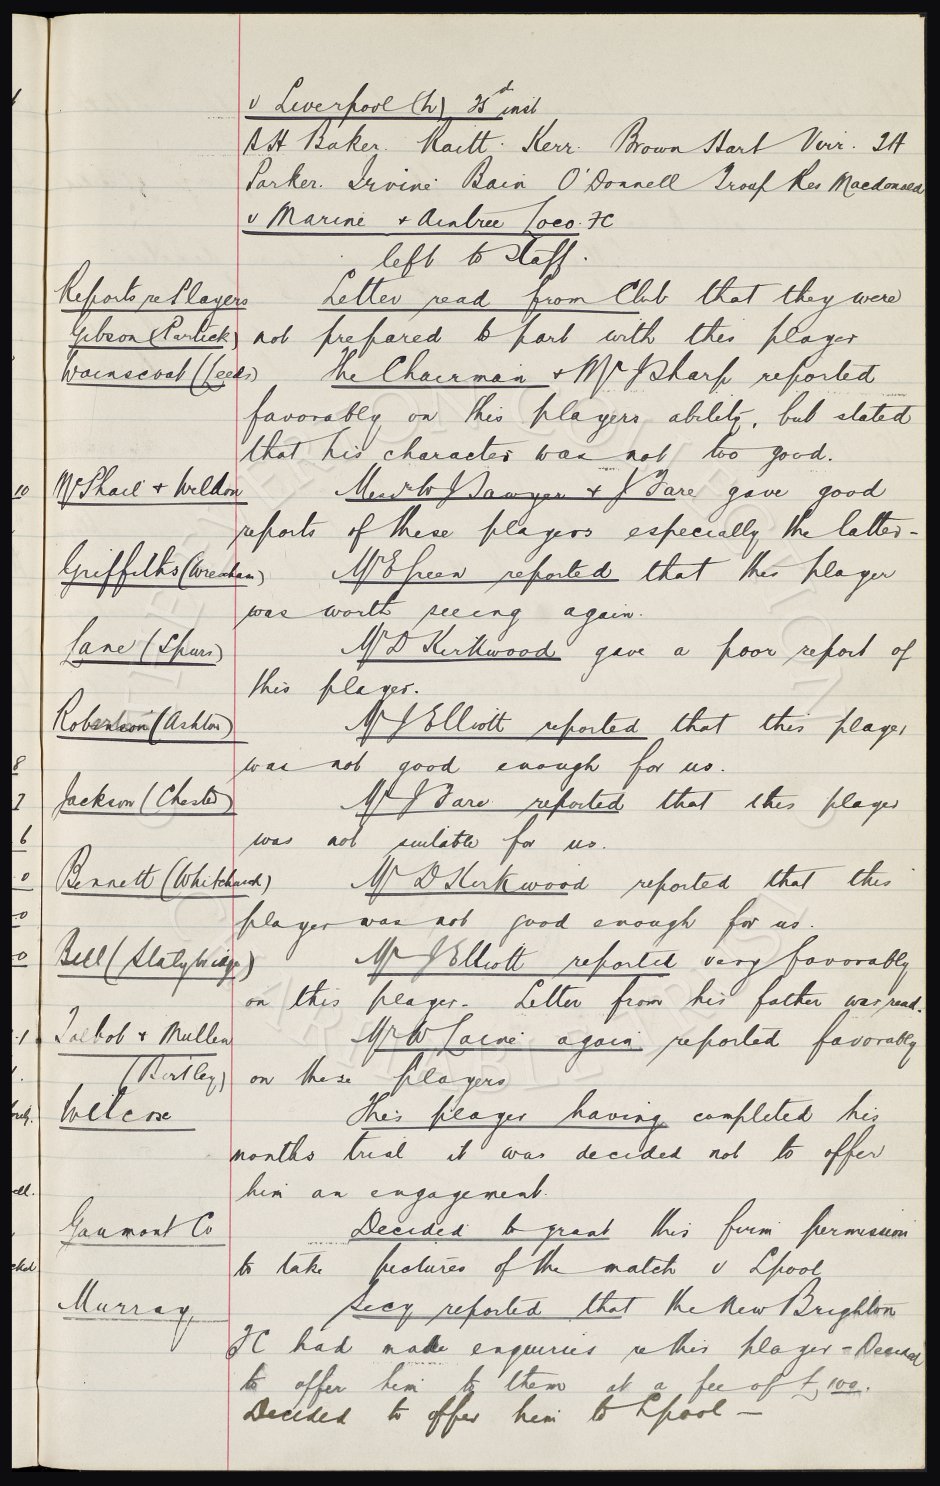 v Liverpool (h) 25th inst
A H Baker. Raitt. Kerr. Brown Hart Virr. T H
Parker. Irvine Bain O'Donnell Troup Res Macdonald
v Marine & Aintree Loco. FC
left to staff.
Reports re Players Letter read from Club that they were
Gibson (Partick) not prepared to part with this player
Wainscoat (Leeds) The Chairman & Mr J Sharp reported
favorably on this players ability, but stated
that his character was not too good.
McPhail & Weldon Messrs W J Sawyer & J Fare gave good
reports of these players especially the latter-
Griffiths (Wrexham) Mr E Green reported that this player
was worth seeing again.
Lane (Spurs) Mr D Kirkwood gave a poor report of
this player.
Robertson (Ashton) Mr J Elliott reported that this player
was not good enough for us.
Jackson (Chester) Mr J Fare reported that this player
was not suitable for us.
Bennett (Whitchurch) Mr D Kirkwood reported that this
player was not good enough for us.
Bell (Stalybridge) Mr J Elliott reported very favorably
on this player. Letter from his father was read.
Talbot & Mullen Mr W Laine again reported favorably
(Birtley) on these players
Wilcox This player having completed his
months trial it was decided not to offer
him an engagement.
Gaumont Co Decided to grant this firm permission
to take pictures of the match v Lpool
Murray, Secy reported that the New Brighton
FC had made enquiries re this player - Decided
to offer him to them at a fee of £100.
Decided to offer him to Lpool —